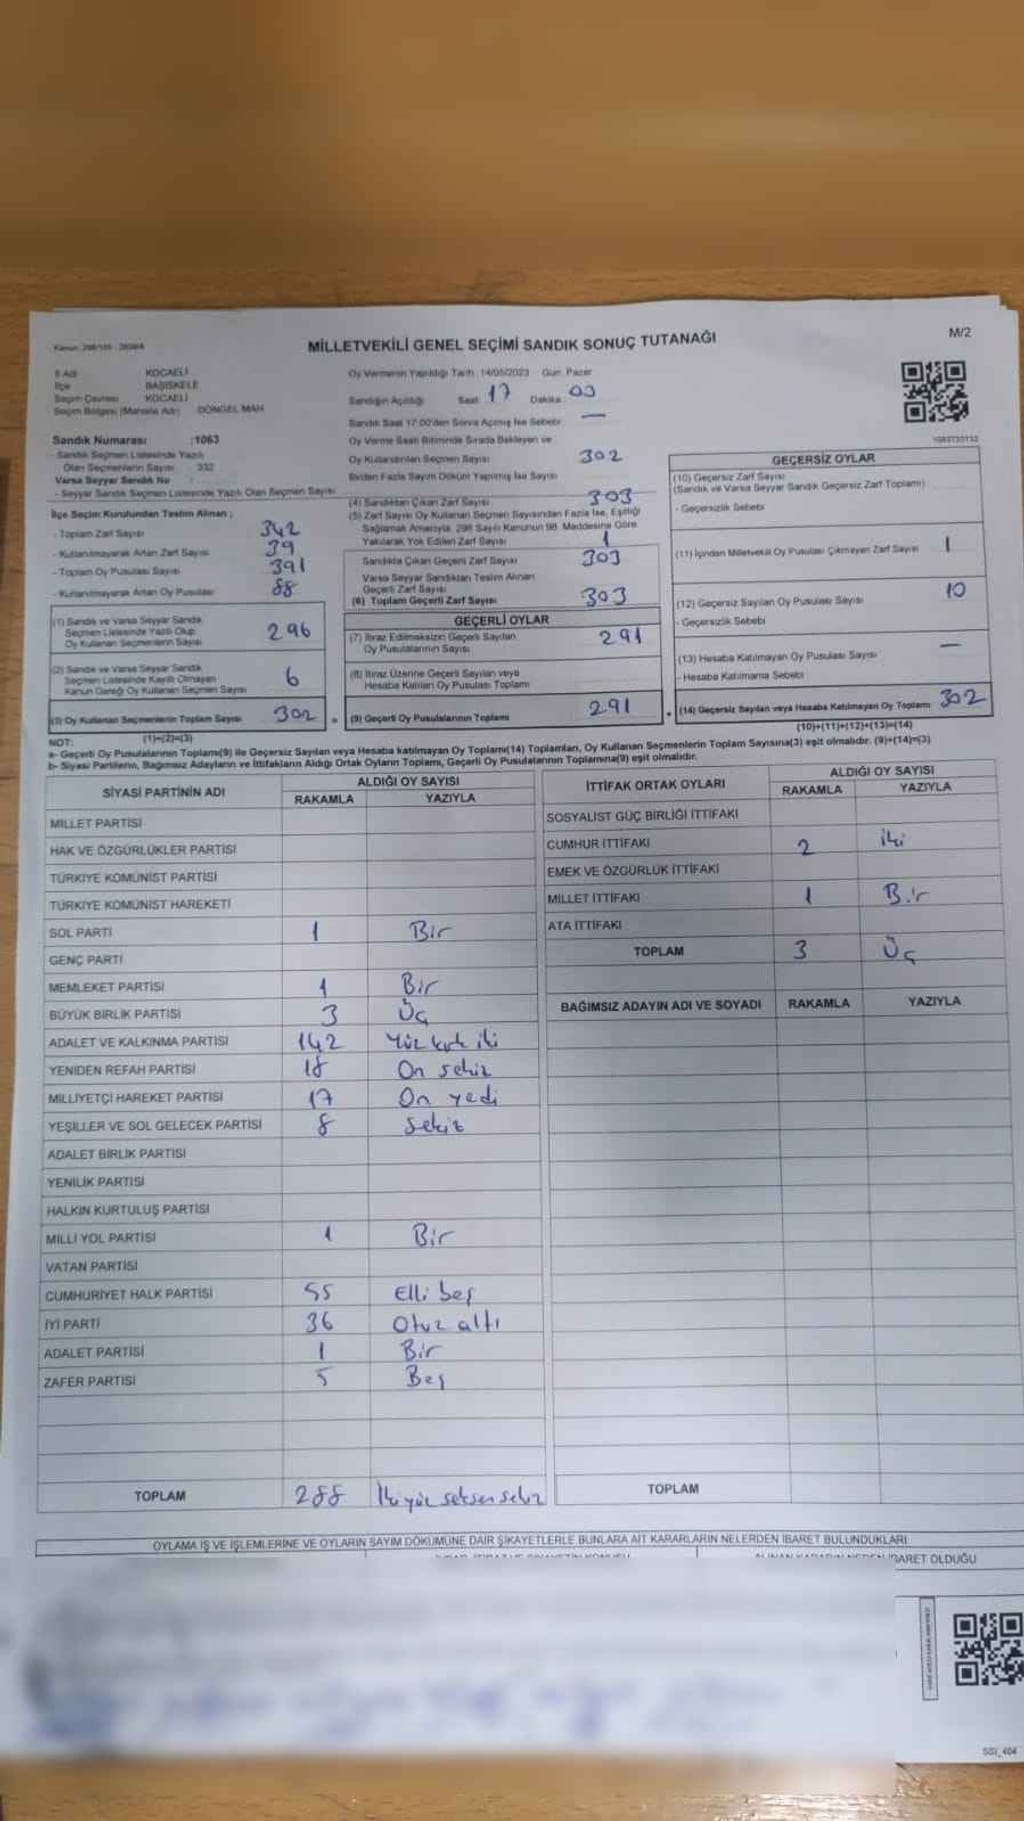 M/2
MİLLETVEKİLİ GENEL SEÇİMİ SANDIK SONUÇ TUTANAĞI
İl Adı KOCAELİ
İlçe BAŞİSKELE
Seçim Çevresi KOCAELİ
Seçim Bölgesi (Mahalle Adı) DÖNGEL MAH
Sandık Numarası :1063
Sandık Seçmen Listesinde Yazılı
Olan Seçmenlerin Sayısı 332
Varsa Seyyar Sandık No
- Seyyar Sandık Seçmen Listesinde Yazılı Olan Seçmen Sayısı
İlçe Seçim Kurulundan Teslim Alınan ;
- Toplam Zarf Sayısı 342
- Kullanılmayarak Artan Zarf Sayısı 39
- Toplam Oy Pusulası Sayısı 391
- Kullanılmayarak Artan Oy Pusulası 88
(1) Sandık ve Varsa Seyyar Sandık
Seçmen Listesinde Yazılı Olup
Oy Kullanan Seçmenlerin Sayısı 296
(2) Sandık ve Varsa Seyyar Sandık
Seçmen Listesinde Kayıtlı Olmayan
Kanun Gereği Oy Kullanan Seçmen Sayısı 6
(3) Oy Kullanan Seçmenlerin Toplam Sayısı 302
(1)+(2)=(3)
Oy Vermenin Yapıldığı Tarih :14/05/2023 Gün: Pazar
Sandığın Açıldığı Saat 17 Dakika 00
Sandık Saat 17:00'den Sonra Açılmış İse Sebebi —
Oy Verme Saati Bitiminde Sırada Bekleyen ve
Oy Kullananları Seçmen Sayısı 302
Birden Fazla Sayım Döküm Yapılmış İse Sayısı
(4) Sandıktan Çıkan Zarf Sayısı 303
(5) Zarf Sayısı Oy Kullanan Seçmen Sayısından Fazla İse, Eşitliği
Sağlamak Amacıyla, 298 Sayılı Kanunun 98. Maddesine Göre
Yakılarak Yok Edilen Zarf Sayısı 1
Sandıkta Çıkan Geçerli Zarf Sayısı 303
Varsa Seyyar Sandıktan Teslim Alınan
Geçerli Zarf Sayısı
(6) Toplam Geçerli Zarf Sayısı 303
GEÇERLİ OYLAR
(7) İtiraz Edilmeksizin Geçerli Sayılan
Oy Pusulalarının Sayısı 291
(8) İtiraz Üzerine Geçerli Sayılan veya
Hesaba Katılan Oy Pusulası Toplamı
(9) Geçerli Oy Pusulalarının Toplamı 291
GEÇERSİZ OYLAR
(10) Geçersiz Zarf Sayısı
(Sandık ve Varsa Seyyar Sandık Geçersiz Zarf Toplamı)
- Geçersizlik Sebebi
(11) İçinden Milletvekili Oy Pusulası Çıkmayan Zarf Sayısı 1
(12) Geçersiz Sayılan Oy Pusulası Sayısı 10
- Geçersizlik Sebebi
(13) Hesaba Katılmayan Oy Pusulası Sayısı —
- Hesaba Katılmama Sebebi
(14) Geçersiz Sayılan veya Hesaba Katılmayan Oy Toplamı 302
(10)+(11)+(12)+(13)=(14)
NOT:
a- Geçerli Oy Pusulalarının Toplamı(9) ile Geçersiz Sayılan veya Hesaba katılmayan Oy Toplamı(14) Toplamları, Oy Kullanan Seçmenlerin Toplam Sayısına(3) eşit olmalıdır. (9)+(14)=(3)
b- Siyasi Partilerin, Bağımsız Adayların ve İttifakların Aldığı Ortak Oyların Toplamı, Geçerli Oy Pusulalarının Toplamına(9) eşit olmalıdır.
SİYASİ PARTİNİN ADI ALDIĞI OY SAYISI
RAKAMLA YAZIYLA
MİLLET PARTİSİ
HAK VE ÖZGÜRLÜKLER PARTİSİ
TÜRKİYE KOMÜNİST PARTİSİ
TÜRKİYE KOMÜNİST HAREKETİ
SOL PARTİ 1 Bir
GENÇ PARTİ
MEMLEKET PARTİSİ 1 Bir
BÜYÜK BİRLİK PARTİSİ 3 Üç
ADALET VE KALKINMA PARTİSİ 142 Yüz kırk iki
YENİDEN REFAH PARTİSİ 18 On sekiz
MİLLİYETÇİ HAREKET PARTİSİ 17 On yedi
YEŞİLLER VE SOL GELECEK PARTİSİ 8 Sekiz
ADALET BİRLİK PARTİSİ
YENİLİK PARTİSİ
HALKIN KURTULUŞ PARTİSİ
MİLLİ YOL PARTİSİ 1 Bir
VATAN PARTİSİ
CUMHURİYET HALK PARTİSİ 55 Elli beş
İYİ PARTİ 36 Otuz altı
ADALET PARTİSİ 1 Bir
ZAFER PARTİSİ 5 Beş
TOPLAM 288 İki yüz seksen sekiz
İTTİFAK ORTAK OYLARI ALDIĞI OY SAYISI
RAKAMLA YAZIYLA
SOSYALİST GÜÇ BİRLİĞİ İTTİFAKI
CUMHUR İTTİFAKI 2 iki
EMEK VE ÖZGÜRLÜK İTTİFAKI
MİLLET İTTİFAKI 1 Bir
ATA İTTİFAKI
TOPLAM 3 Üç
BAĞIMSIZ ADAYIN ADI VE SOYADI RAKAMLA YAZIYLA
TOPLAM
OYLAMA İŞ VE İŞLEMLERİNE VE OYLARIN SAYIM DÖKÜMÜNE DAİR ŞİKAYETLERLE BUNLARA AİT KARARLARIN NELERDEN İBARET BULUNDUKLARI
İBARET OLDUĞU